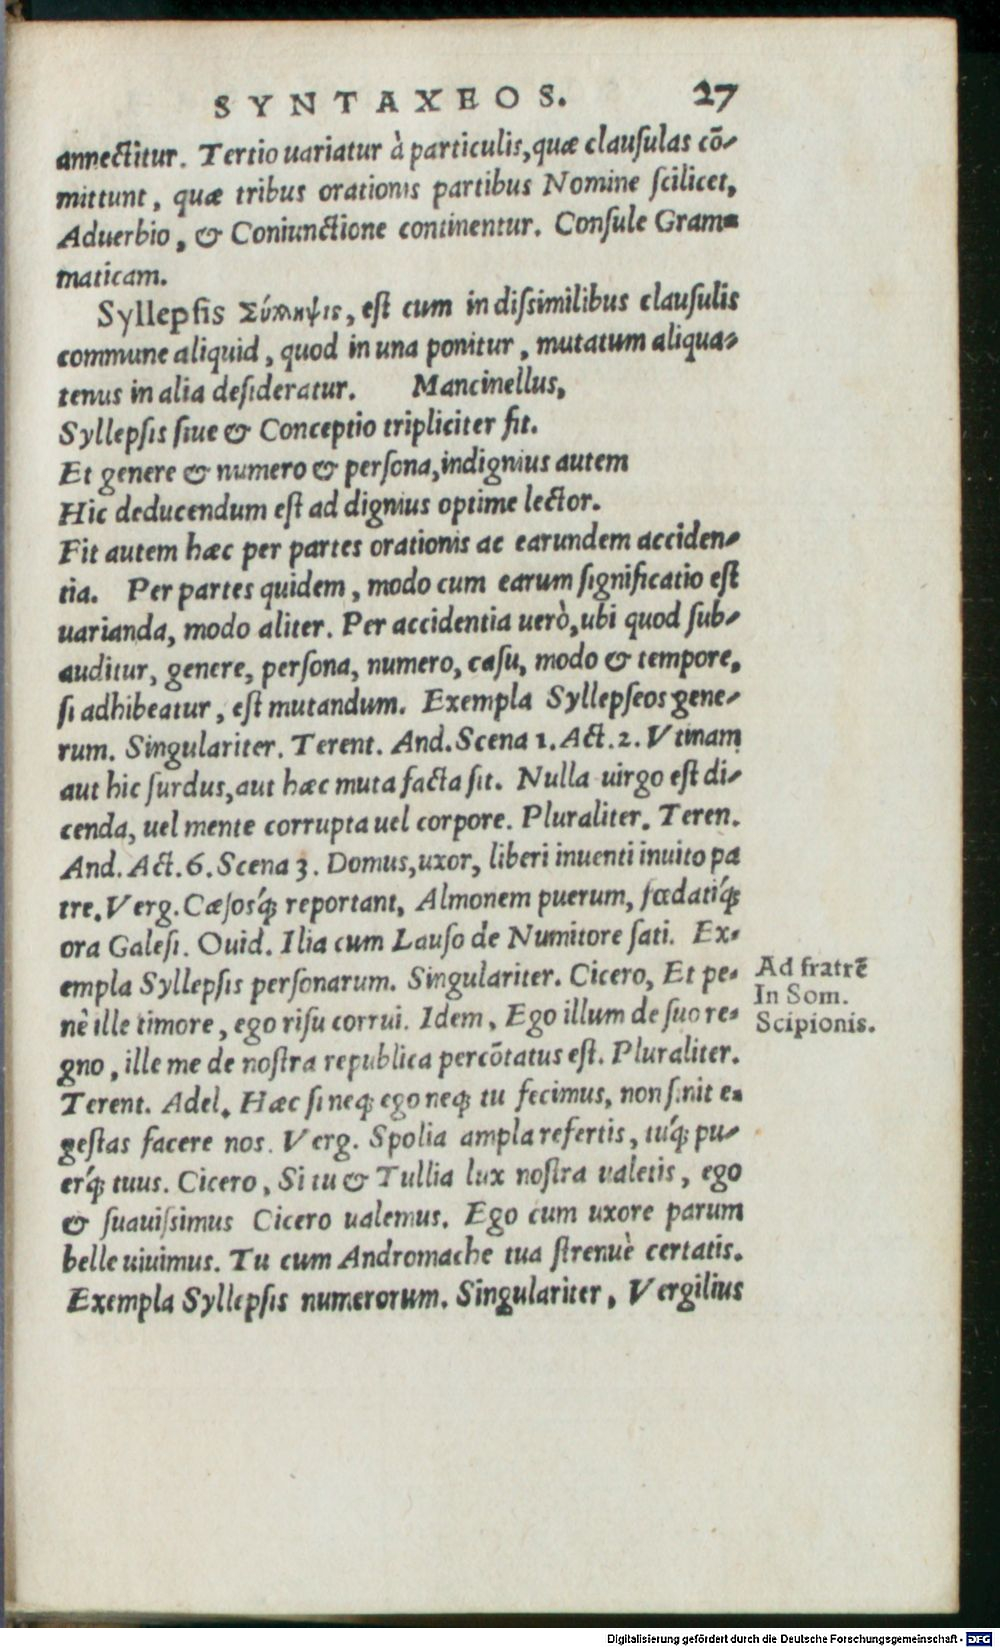 SYNTAXEOS. 27
annectitur. Tertio uariatur à particulis, quæ clauſulas cõ-
mittunt, quæ tribus orationis partibus Nomine ſcilicet,
Aduerbio, & Coniunctione continentur. Conſule Gram-
maticam.
Syllepſis Σύλληψις, eſt cum in diſsimilibus clauſulis
commune aliquid, quod in una ponitur, mutatum aliqua-
tenus in alia deſideratur. Mancinellus,
Syllepſis ſiue & Conceptio tripliciter fit.
Et genere & numero & perſona, indignius autem
Hic deducendum eſt ad dignius optime lector.
Fit autem hæc per partes orationis ac earundem acciden-
tia. Per partes quidem, modo cum earum ſignificatio eſt
uarianda, modo aliter. Per accidentia uerò, ubi quod ſub-
auditur, genere, perſona, numero, caſu, modo & tempore,
ſi adhibeatur, eſt mutandum. Exempla Syllepſeos gene-
rum. Singulariter. Terent. And. Scena 1. Act. 2. Vtinam
aut hic ſurdus, aut hæc muta facta ſit. Nulla uirgo eſt di-
cenda, uel mente corrupta uel corpore. Pluraliter. Teren.
And. Act. 6. Scena 3. Domus, uxor, liberi inuenti inuito pa
tre. Verg. Cæſosq́; reportant, Almonem puerum, fœdatiq́;
ora Galeſi. Ouid. Ilia cum Lauſo de Numitore ſati. Ex-
empla Syllepſis perſonarum. Singulariter. Cicero, Et pe-
nè ille timore, ego riſu corrui. Idem, Ego illum de ſuo re-
gno, ille me de noſtra republica percõtatus eſt. Pluraliter.
Terent. Adel. Hæc ſi neq; ego neq; tu fecimus, non ſinit e-
geſtas facere nos. Verg. Spolia ampla refertis, tuq́; pu-
erq́; tuus. Cicero, Si tu & Tullia lux noſtra ualetis, ego
& ſuauiſsimus Cicero ualemus. Ego cum uxore parum
belle uiuimus. Tu cum Andromache tua ſtrenuè certatis.
Exempla Syllepſis numerorum. Singulariter, Vergilius
Ad fratrẽ
In Som.
Scipionis.
Digitalisierung gefördert durch die Deutsche Forschungsgemeinschaft - DFG